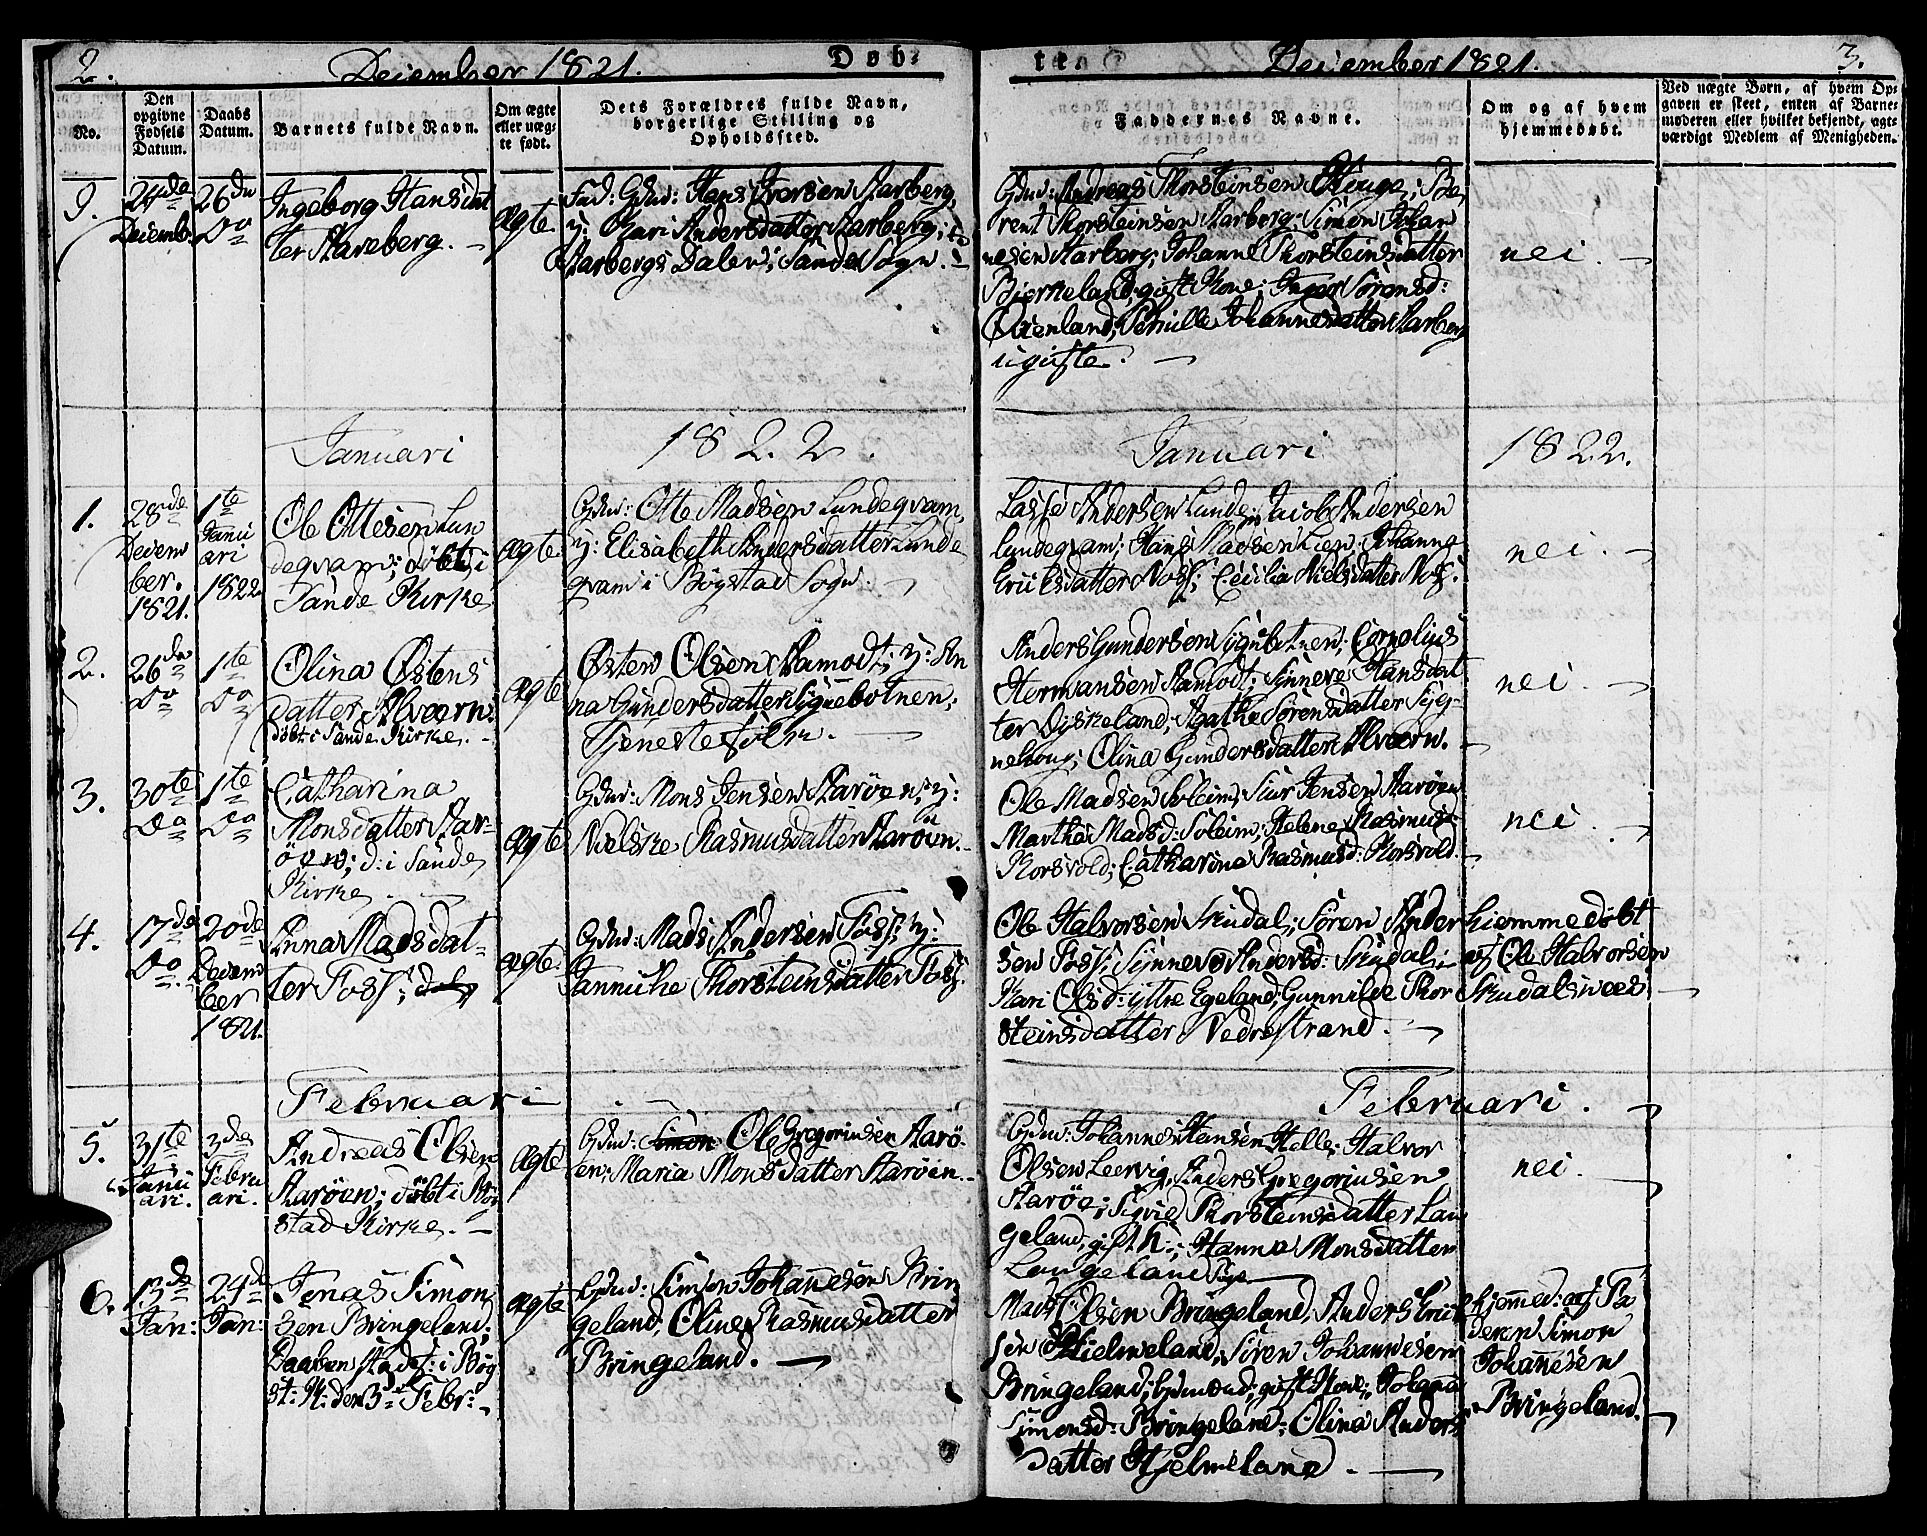 2. December 1821. Døb-
No.
Den opgivne Fødsels Datum.
Daabs Datum.
Barnets fulde Navn.
Om ægte eller uægte født.
Dets Forældres fulde Navn, borgerlige Stilling og Opholdssted.
9.
24de
Decemb.
26du
Do
Ingeborg Hansdat
ter Aareberg.
ægte
Hans Iversen Aarberg
y: Kari Andersdatter Aarberg;
Aarbergs Dalen; Sande Sogn.
Januari 1822.
1.
28de
Decem
ber.
1821.
1te
Janu
ari
1822
Ole Ottesen Lun
deqvam; döbt i
Sande Kirke
ægte
Gdm: Otte Madsen Lundeqvam,
y: Elisabeth Andersdatter Lunde
qvam i Bøgstad Sogn.
2.
26de
Do
1te
Do
Olina Østens
datter Alværn;
döbt i Sande Kirke.
ægte
Østen Olsen Aamodt; y: An
na Gundersdatter Siguebotnen;
Tjenestefolk.
3.
30te
Do
1te
Do
Catharina
Monsdatter Aar-
öen; d: i Sande
Kirke
ægte
Gdm: Mons Jensen Aaröen; y:
Nielske Rasmusdatter Aaröen.
4.
17de
Do
20de
Decem
ber
1821.
Anna Madsdat-
ter Foss;
ægte
Gdm: Mads Andersen Foss; y:
Jannicke Thorsteinsdatter Foss.
Februari
5.
31te
Janu
ari.
3de
Febru
ari.
Andreas Olsen
Aaröen; döbt i Bög
stad Kirke.
ægte
Gdm: Simon Ole Gregoriusen Aarö-
en; Maria Monsdatter Aaröen.
6.
13de
Jan:
24d
Jan:
Jonas Simon
sen Bringeland;
Daaben stadf: i Bög
st: K: den 3de Febr:
ægte
Gdm: Simon Johanesen Brin
geland, Oline Rasmusdatter
Bringeland.
te December 1821. 3.
Faddernes Navne.
Om og af hvem hjemmedøbt.
Ved uægte Børn, af hvem Op-
gaven er skeet, enten af Barne-
moderen eller hvilket bekjendt, agt-
værdigt Medlem af Menigheden.
Gdm: Andreas Thorsteinsen Hauge; Be
rent Thorsteinsen Aarberg; Simon Johan
nesen Aarberg; Johanne Thorsteinsdatter
Bierkeland, gift Kone; Inger Sörensd:
Öxenland; Pernille Johannesdatter Aarberg
ugifte.
nei.
Januari 1822.
Lasse Andersen Lunde; Jacob Andersen
Lundeqvam; Hans Madsen Lien; Johanna
Ericksdatter Foss; Cecilia Nielsdatter Foss.
nei.
Anders Gundersen Siguebotnen; Cornelius
Hermansen Aamodt; Sinneve Hansdat
ter Dyskeland; Agathe Sörensdatter Syg-
nehoug; Olina Gundersdatter Alværn.
nei.
Ole Madsen Soleim; Siur Jensen Aaröen
Martha Madsd: Soleim; Helene Rasmusd:
Korsvold; Catharina Rasmusd: Korsvold.
nei.
Ole Halvorsen Skudal; Sören Ander
sen Foss; Synneve Andersd: Skudal;
Kari Olsd: yttre Egeland; Gunnilde Thor
steinsdatter Nedrestrand.
hiemmedöbt
af Ole Halvorsen
Skudalsnees.
Februari.
Gdm: Johannes Hansen Helle; Halvor
Olsen Leervig, Anders Gregoriusen
Aaröe; Sigvie Thorsteinsdatter Lan
geland, gift K:; Hanna Monsdatter
Langeland Pige
nei.
Mads Olsen Bringeland, Anders Erick
sen Hielmeland, Sören Johannesen
Bringeland; gift Kone; Johana
Simonsd: Bringeland; Olina Anders
datter Hjelmeland.
hjemmed: af Fa
deren Simon
Johanesen
Bringeland.